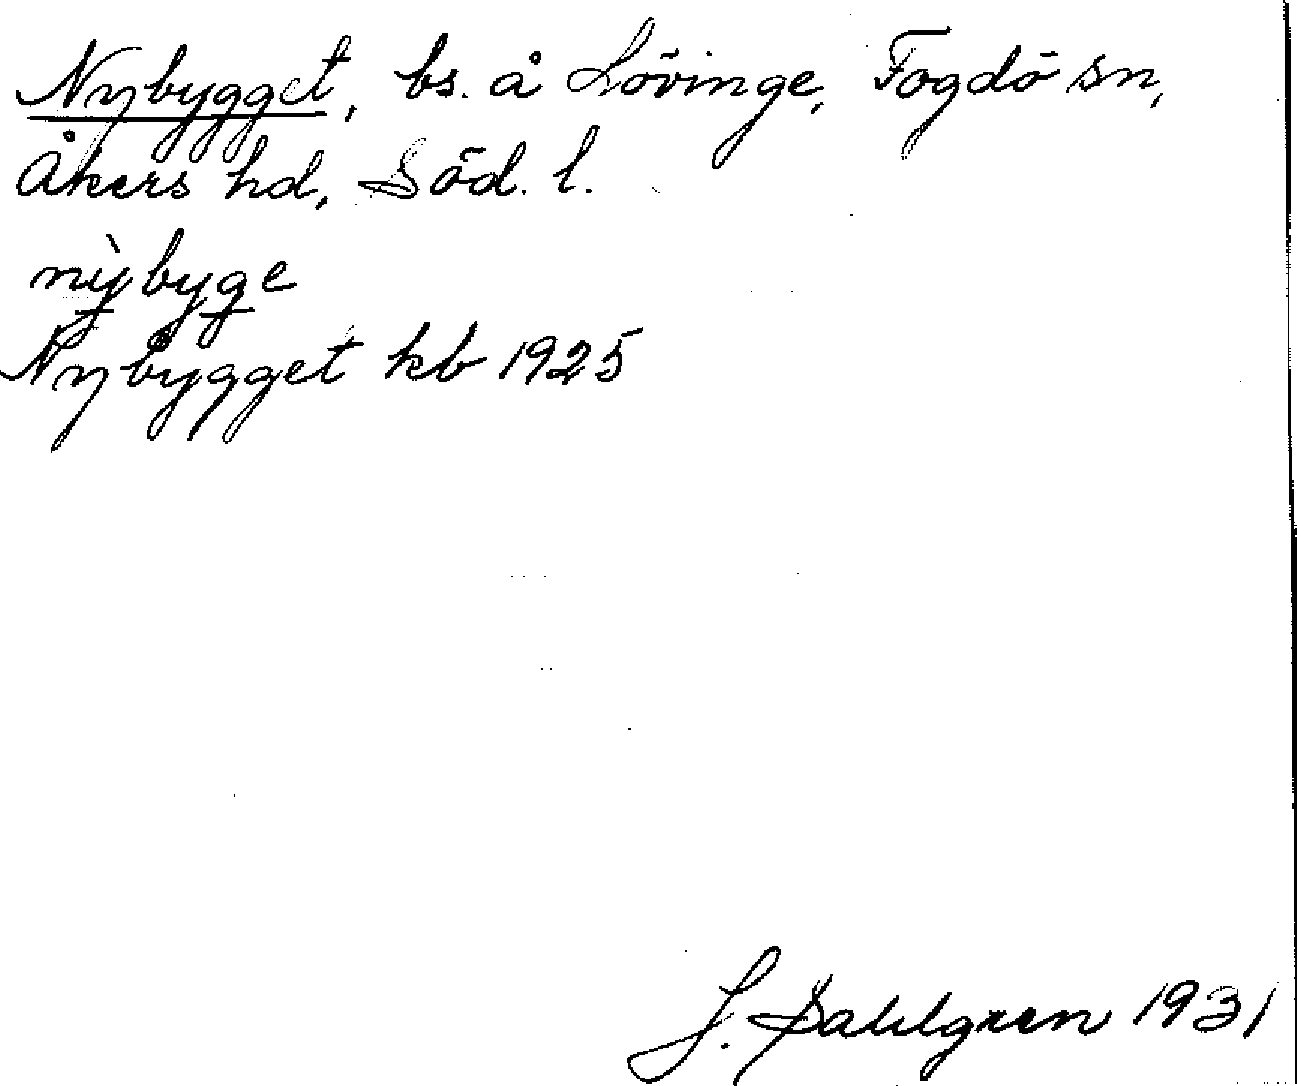 Nybygget, bs. å Lövinge, Fogdö sn,
Åkers hd, Söd. l.
nỳbyge
Nybygget kb 1925
J. Sahlgren 1931